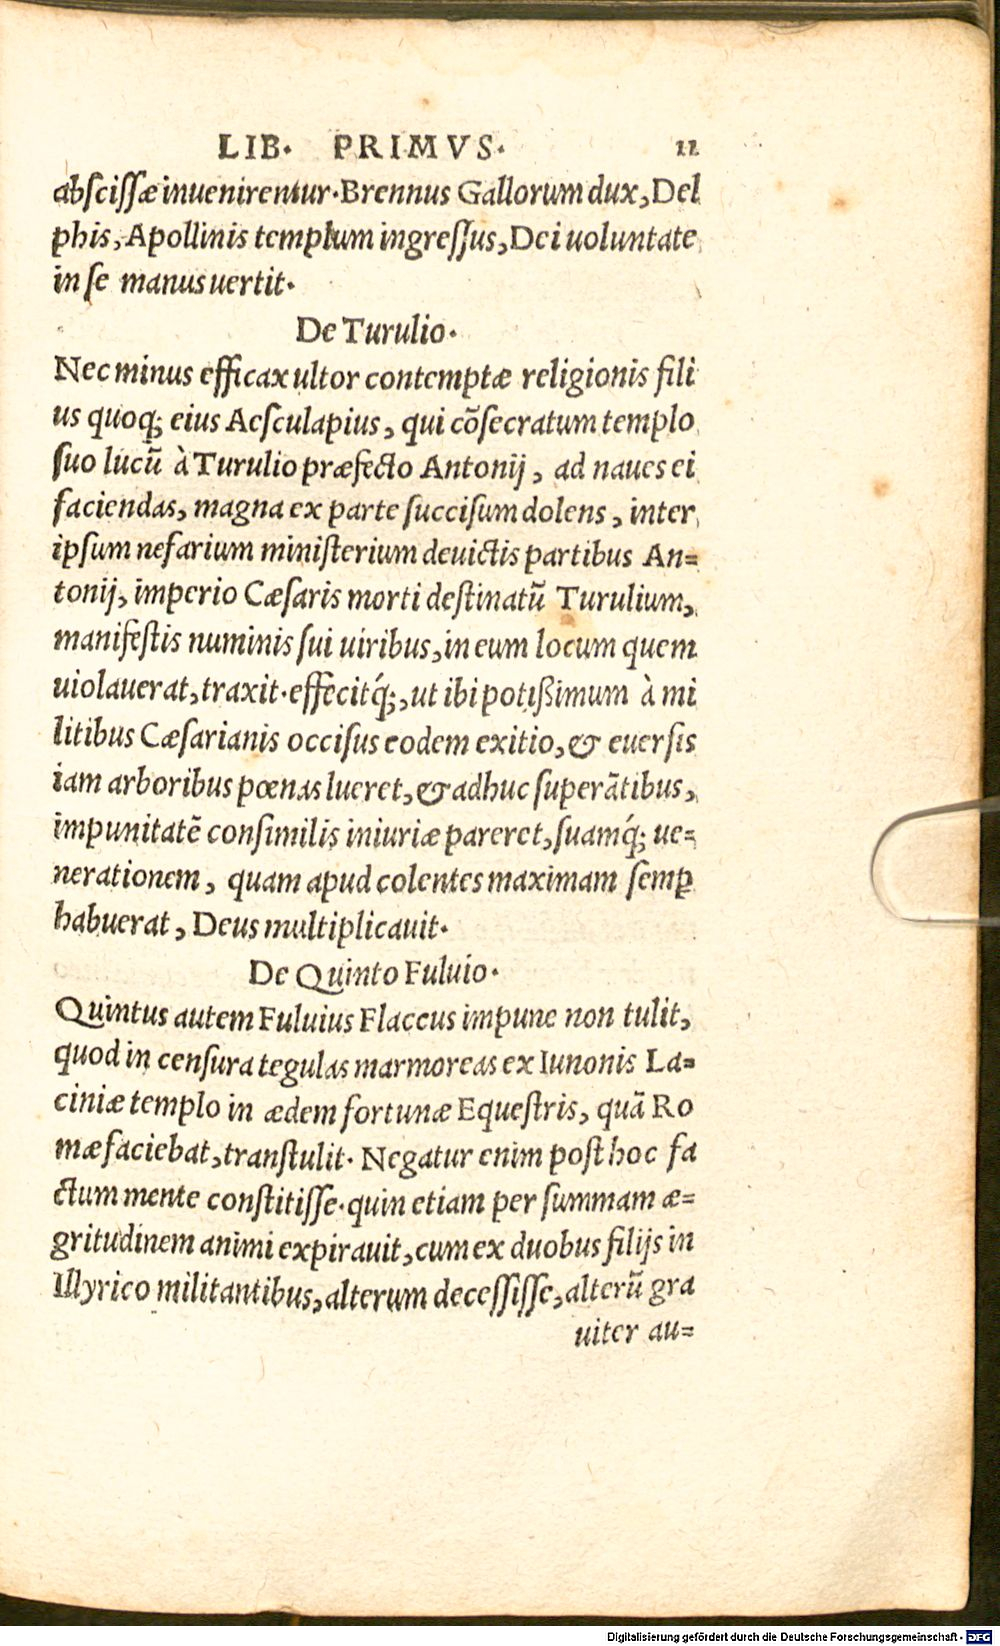 LIB. PRIMVS. 11
abſciſſæ inuenirentur. Brennus Gallorum dux, Del
phis, Apollinis templum ingreſſus, Dei uoluntate
in ſe manus uertit.
De Turulio.
Nec minus efficax ultor contemptæ religionis fili
us quoq; eius Aeſculapius, qui cõſecratum templo
ſuo lucũ à Turulio præfecto Antonij, ad naues ei
faciendas, magna ex parte ſucciſum dolens, inter
ipſum nefarium miniſterium deuictis partibus An=
tonij, imperio Cæſaris morti deſtinatũ Turulium,
manifeſtis numinis ſui uiribus, in eum locum quem
uiolauerat, traxit. effecitq́;, ut ibi potißimum à mi
litibus Cæſarianis occiſus eodem exitio, & euerſis
iam arboribus pœnas lueret, & adhuc ſuperãtibus,
impunitatẽ conſimilis iniuriæ pareret, ſuamq́; ue=
nerationem, quam apud colentes maximam ſemꝑ
habuerat, Deus multiplicauit.
De Quinto Fuluio.
Quintus autem Fuluius Flaccus impune non tulit,
quod in cenſura tegulas marmoreas ex Iunonis La=
ciniæ templo in ædem fortunæ Equeſtris, quã Ro
mæ faciebat, tranſtulit. Negatur enim poſt hoc fa
ctum mente conſtitiſſe. quin etiam per ſummam æ=
gritudinem animi expirauit, cum ex duobus filijs in
Illyrico militantibus, alterum deceſſiſſe, alterũ gra
uiter au=
Digitalisierung gefördert durch die Deutsche Forschungsgemeinschaft - DFG